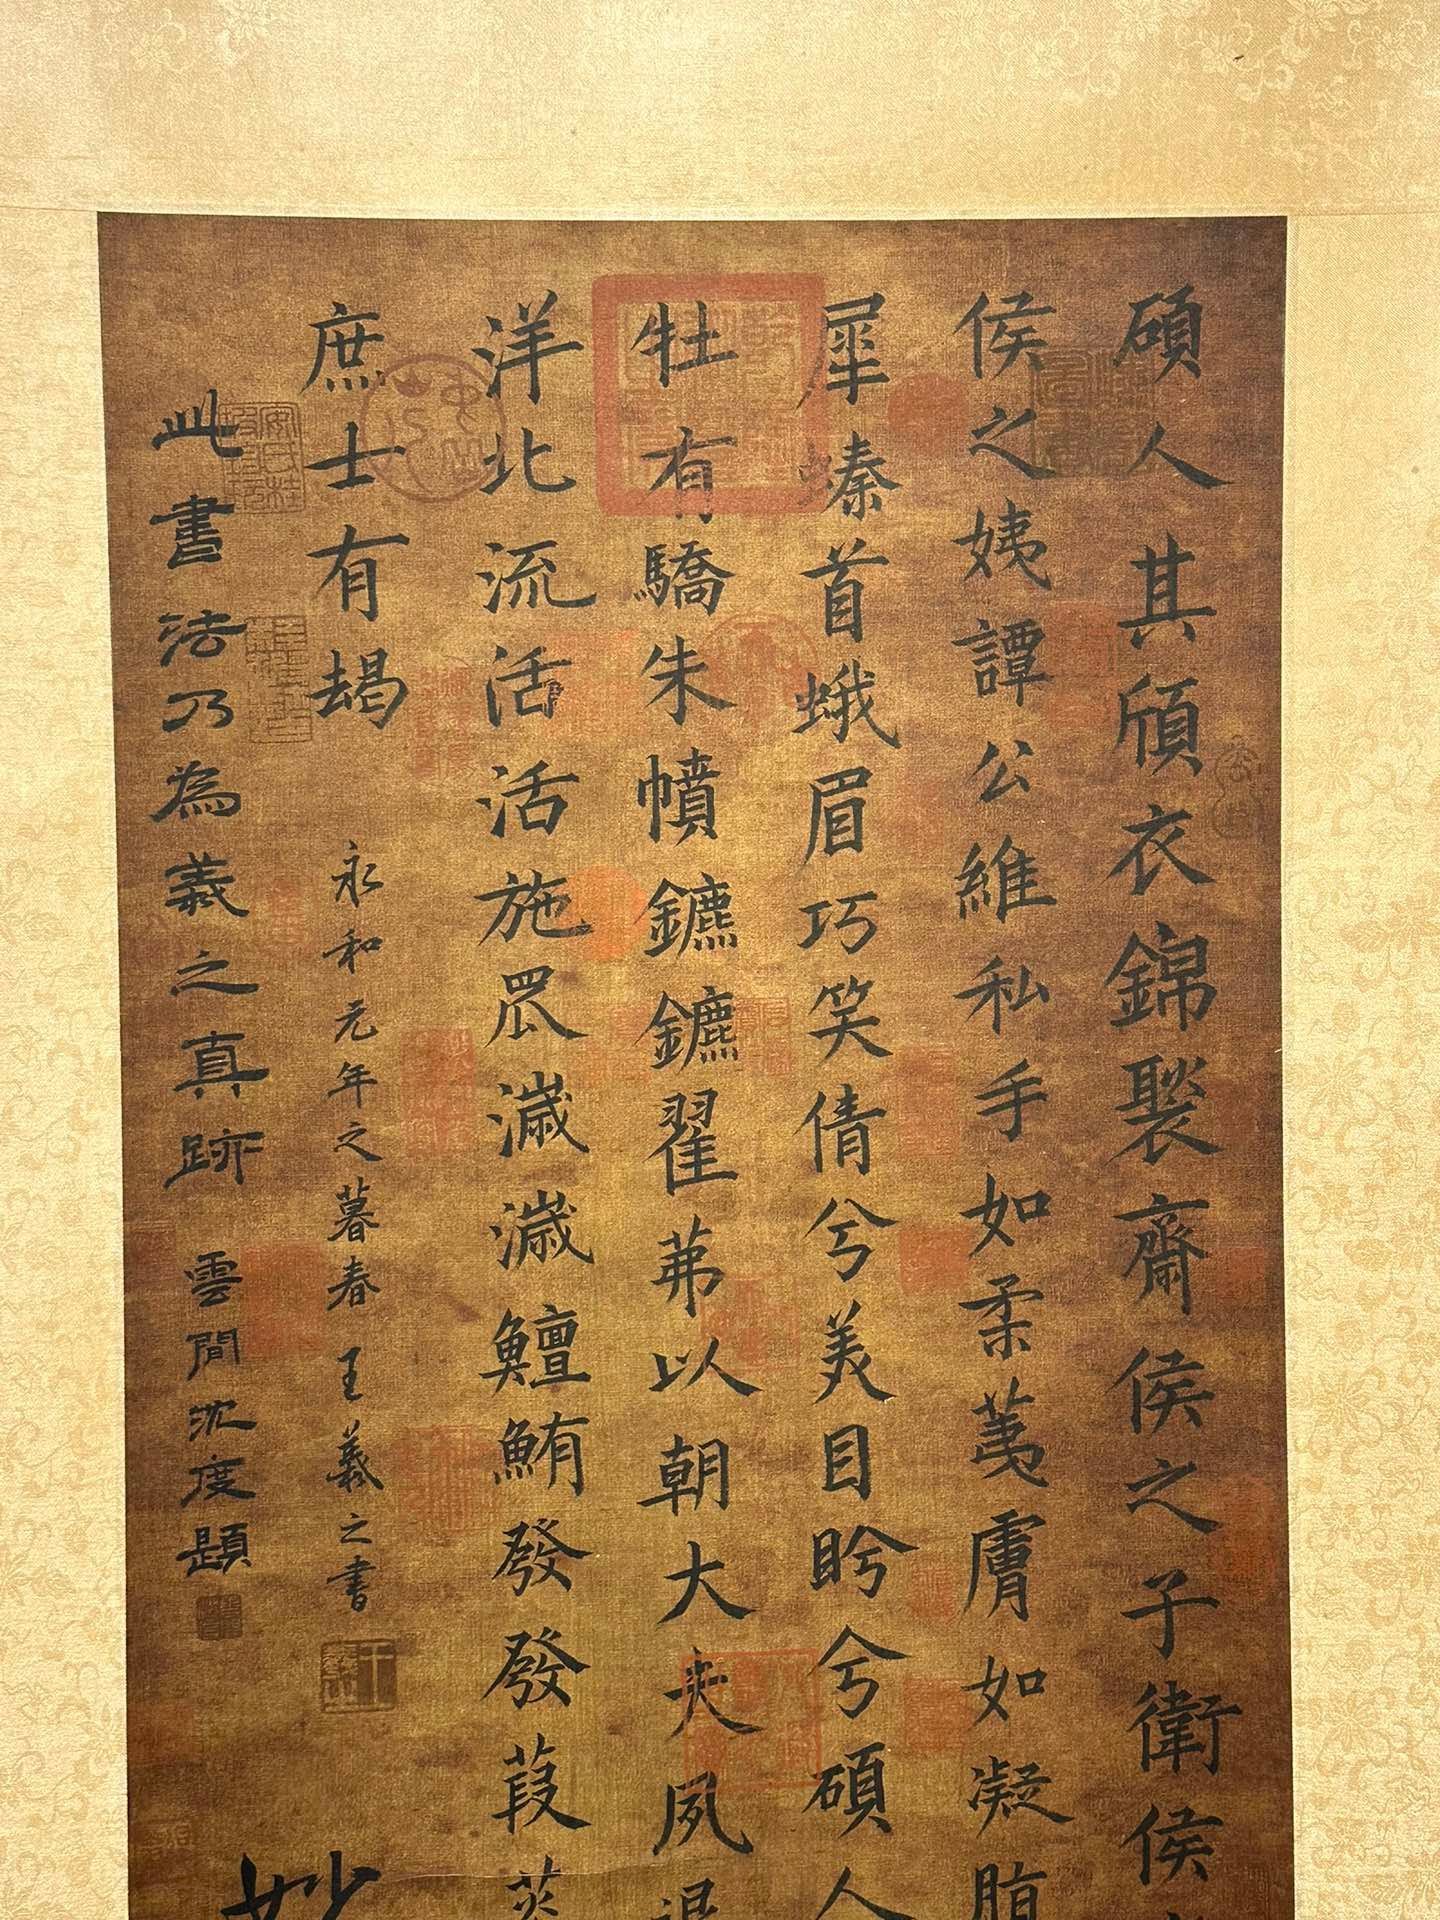 碩人其頎衣錦褧齋侯之子衛侯
侯之姨譚公維私手如柔荑膚如凝脂
犀螓首蛾眉巧笑倩兮美目盼兮碩人
牡有驕朱幩鑣鑣翟茀以朝大夫夙退
洋北流活活施罛濊濊鱣鮪發發葭菼
庶士有朅
永和元年之暮春王羲之書
此書法乃為羲之真跡 雲間沈度題
妙